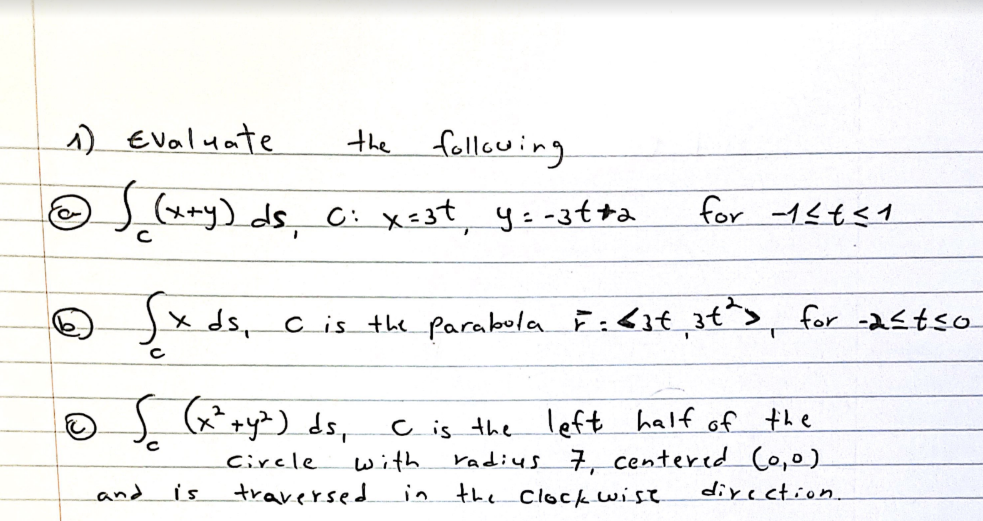 1) Evaluate the following
ⓐ ∫_C (x+y) ds, C: x=3t, y=-3t+2 for -1≤t≤1
ⓑ ∫_C x ds, C is the parabola r̄=<3t,3t²>, for -2≤t≤0
ⓒ ∫_C (x²+y²) ds, C is the left half of the
circle with radius 7, centered (0,0)
and is traversed in the clockwise direction.